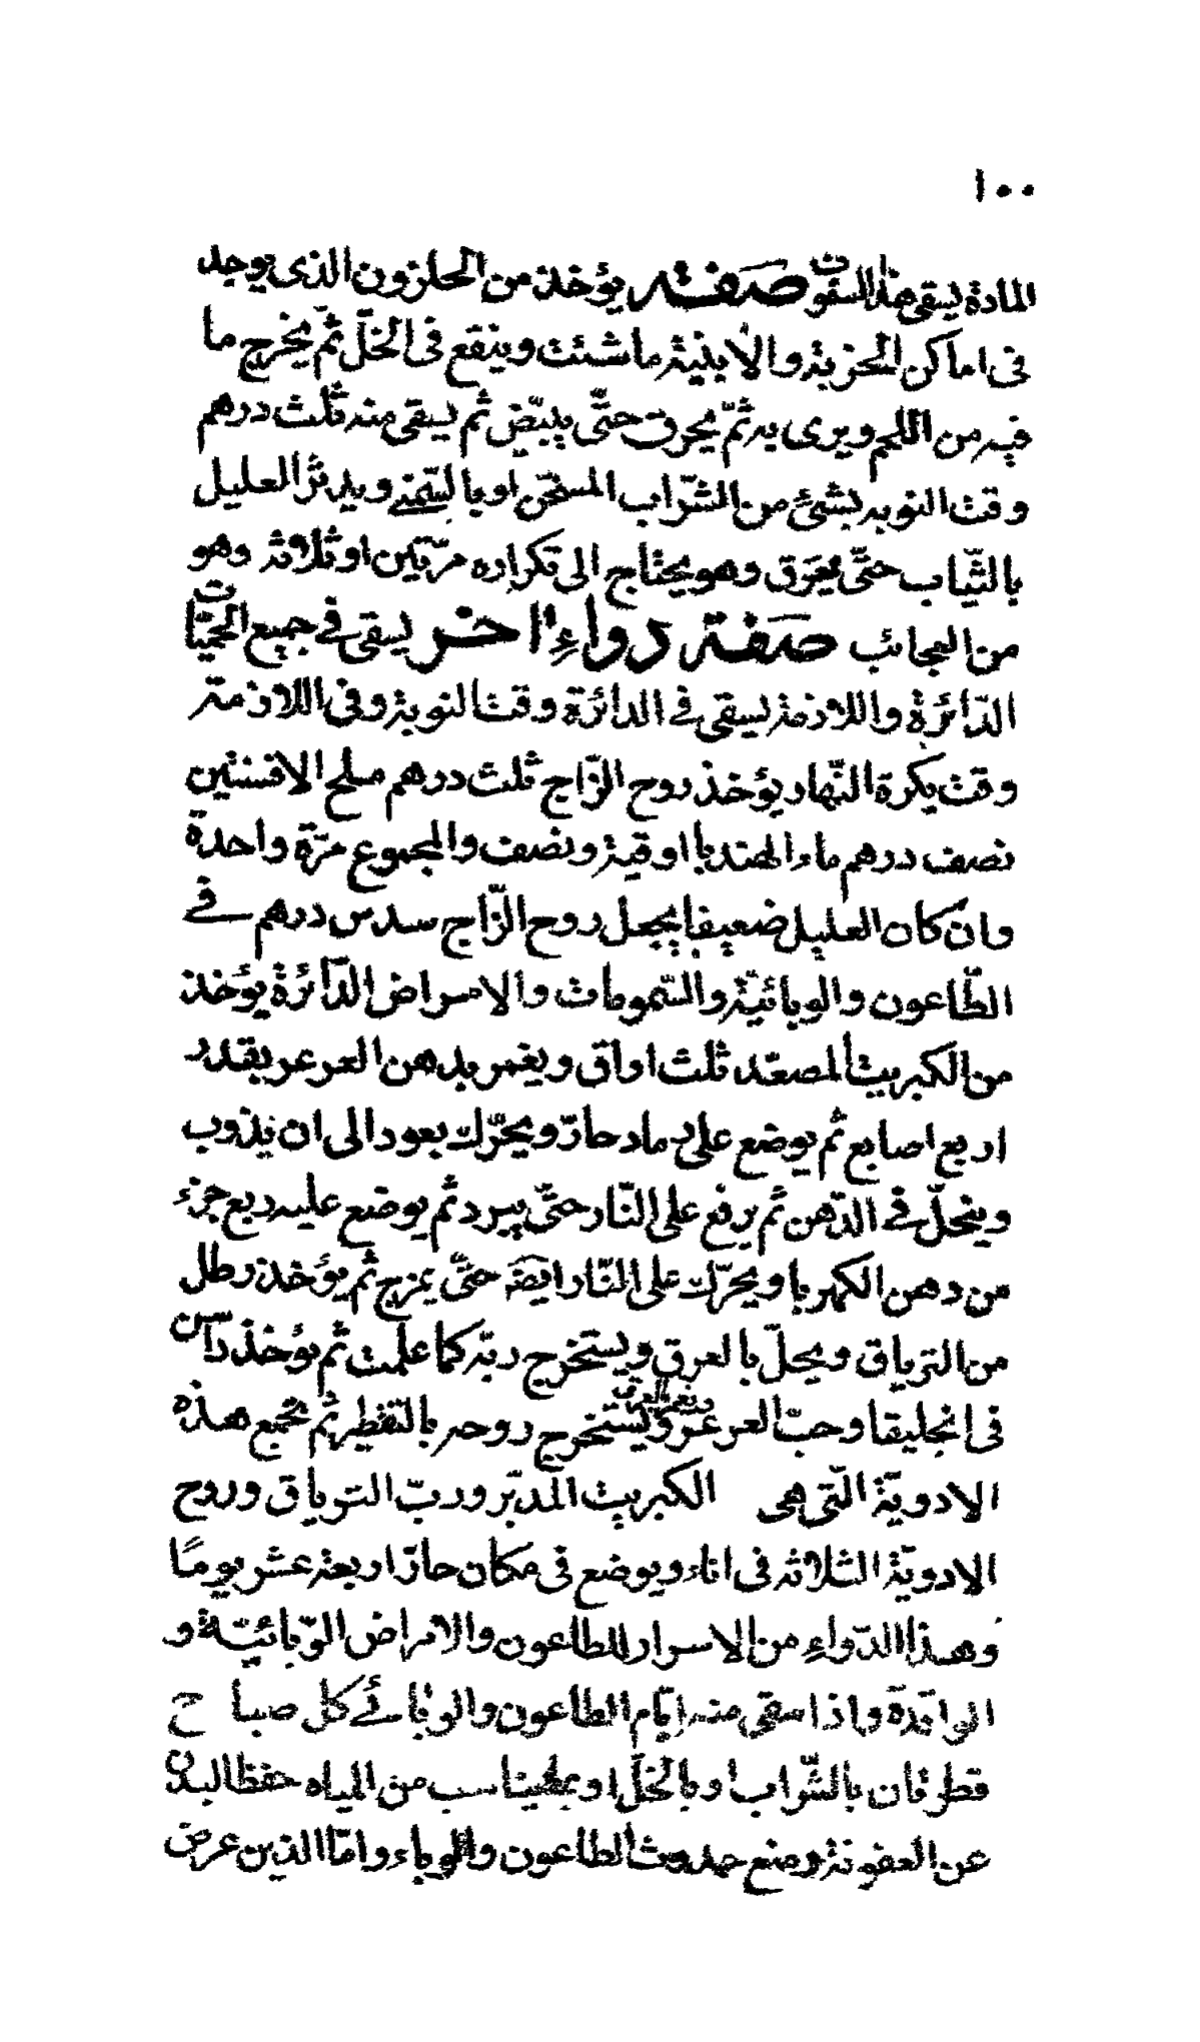 ١٠٠
المادة يسقى هذا السفوف صفته يؤخذ من الحلزون الذى يوجد
فى اماكن الخربة والابنية ما شئت وينقع فى الخلّ ثمّ يخرج ما
فيه من اللحم ويرى به ثمّ يحرق حتّى يبيّض ثم يسقى منه ثلث درهم
وقت النوبه بشئ من الشّراب المسخّن او بالسّمنے ويدثر العليل
بالثّياب حتّى يعرق وهو يحتاج الى تكراره مرّتين او ثلاثه وهو
من العجائب صفة دواء اخر يسقى فے جميع الحميّات
الدّائرة واللازمة يسقى فے الدائرة وقت النوبة وفى اللازمة
وقت بكرة النّهار يؤخذ روح الزّاج ثلث درهم ملح الافسنتين
نصف درهم ماء الهندبا اوقية ونصف والمجموع مرّة واحدة
وان كان العليل ضعيفا يجعل روح الزّاج سدس درهم فے
الطّاعون والوبائيّة والسّمومات والامراض الدّائرة يؤخذ
من الكبريت المصعّد ثلث اواق ويغمر بدهن العرعر بقدر
اربع اصابع ثم يوضع على رماد حارّ ويحرّك بعود الى ان يذوب
وينحلّ فے الدّهن ثم يرفع على النّار حتّى يبرد ثم يوضع عليه ربع جزء
من دهن الكهربا ويحرّك على النّار ايضا حتّى يمزج ثم يؤخذ رطل
من الترياق ويحلّ بالعرق ويستخرج ربّه كما علمت ثم يؤخذ راسن
فى انجليقا وحبّ العرعر ويستخرج روحه بالتقطير ثم تجمع هذه
الادويّة الّتى هى الكبريت المدبّر وربّ الترياق وروح
الادويّة الثلاثه فى اناء ويوضع فى مكان حارّ اربعة عشر يومًا
وهذا الدّواء من الاسرار للطاعون والامراض الوّبائيّة و
الوافدة واذا سقى منه ايّام الطاعون والوبائے كل صباح
قطرتان بالشّراب او بالخلّ او بما يناسب من المياه حفظ البدن
عن العفونة ومنع حدوث الطاعون والوباء وامّا الذين عرض